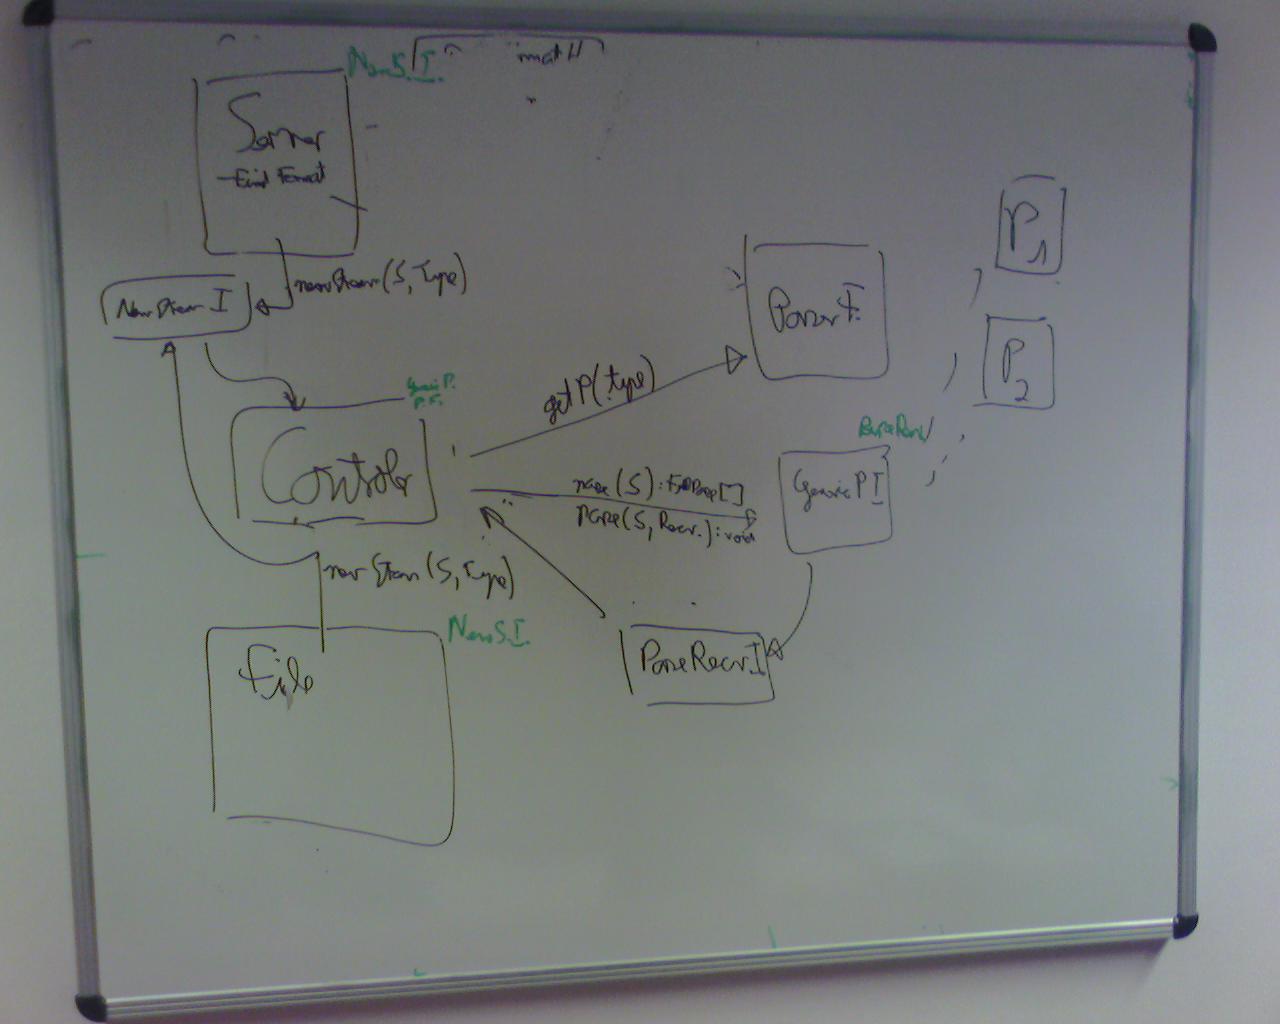 NewS.I.
Server
- Find Format
newStream(S, Type)
NewStream I
Generic P.
P.F.
Controler
getP(type)
Parser F.
P1
P2
GenericPI
parse(S, Recvr.): void
newStream(S, Type)
NewS.I.
File
ParseRecvr.I